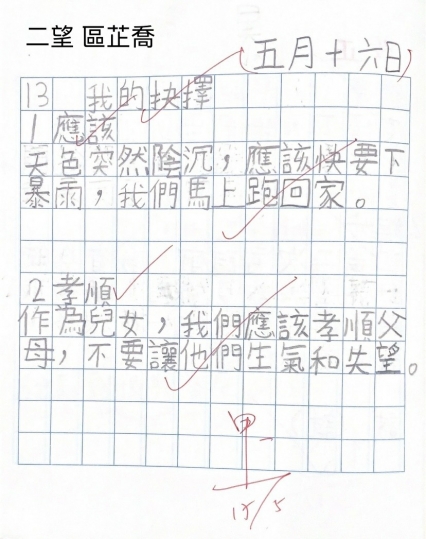 二望 區芷喬
(五月十六日)
13 我的抉擇
1 應該
天色突然陰沉，應該快要下
暴雨，我們馬上跑回家。
2 孝順
作為兒女，我們應該孝順父
母，不要讓他們生氣和失望。
甲-
15/5